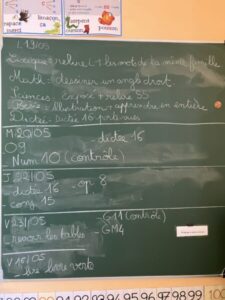 espace
limaçon,
ça
serpent
garçon
poisson,
L 19/05
Lexique = relire L1 les mots de la même famille
Math = dessiner un angle droit
Sciences = Exposé + relire S5
Poésie = illustration + apprendre en entière
Dictée = Dictée 16 préparée
M 20/05 dictée 16
O9
Num 10 (contrôle)
J 22/05
- dictée 16 - op. 8
- conj. 15
V 23/05 - G11 (contrôle)
revoir les tables - GM4
V 16/05
lire livre verb
91 92 93 94 95 96 97 98 99 100